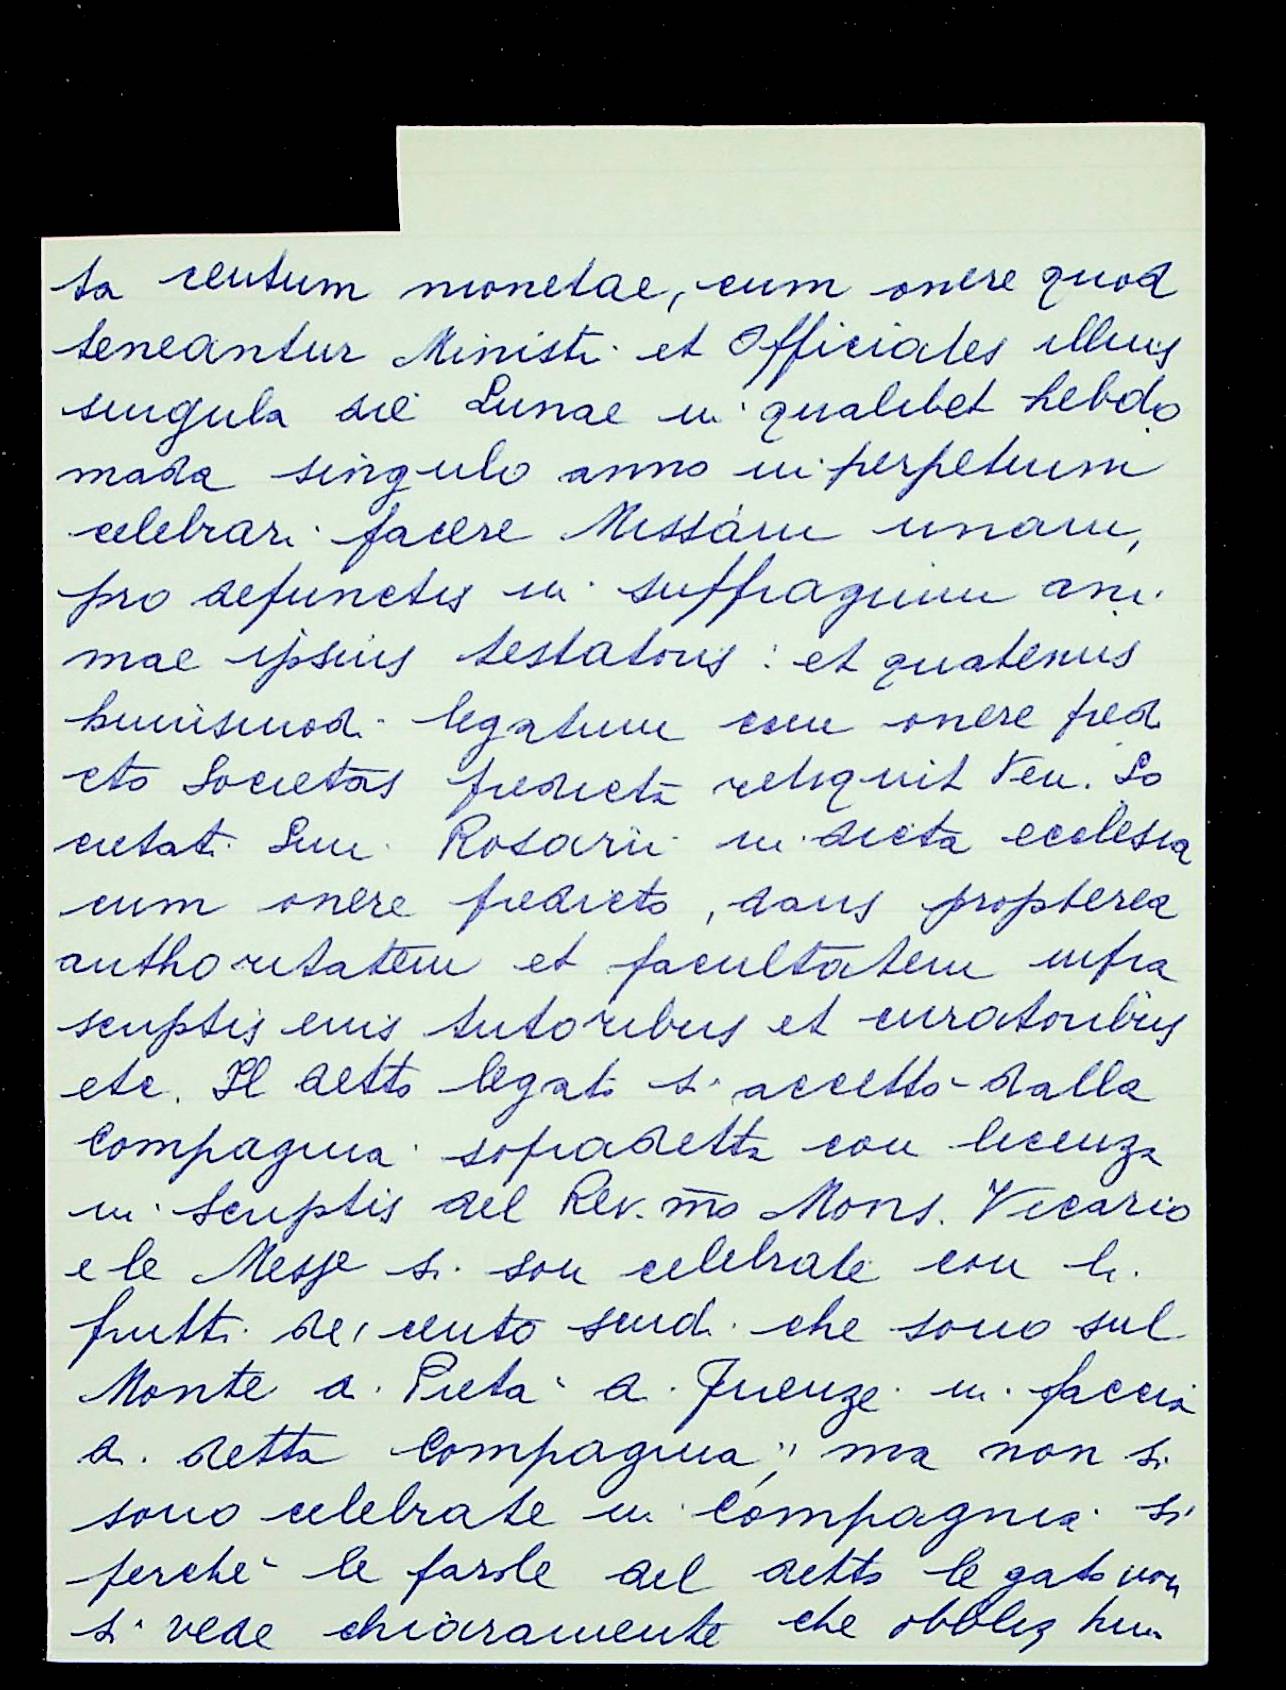 ta centum monetae, cum onere quod
teneantur Ministri et Officiales illius
singula die Lunae in qualibet hebdo
mada singulo anno in perpetuum
celebrari facere Missam unam,
pro defunctis in suffragium ani
mae ipsius testatoris : et quatenus
huiusmodi legatum cum onere pred
cto Societas predicta reliquit Ven. So
cietati Rosarii in dicta ecclesia
cum onere predicto, dans propterea
authoritatem et facultatem infra
scriptis eius tutoribus et curatoribus
etc. Il detto legato si accettò dalla
Compagnia sopradetta con licenza
in scriptis del Rev.mo Mons. Vicario
e le Messe si son celebrate con li
frutti dei cento scudi che sono sul
Monte di Pietà di Firenze in faccia
di detta Compagnia", ma non si
sono celebrate in Compagnia si
perchè le parole del detto legato non
si vede chiaramente che